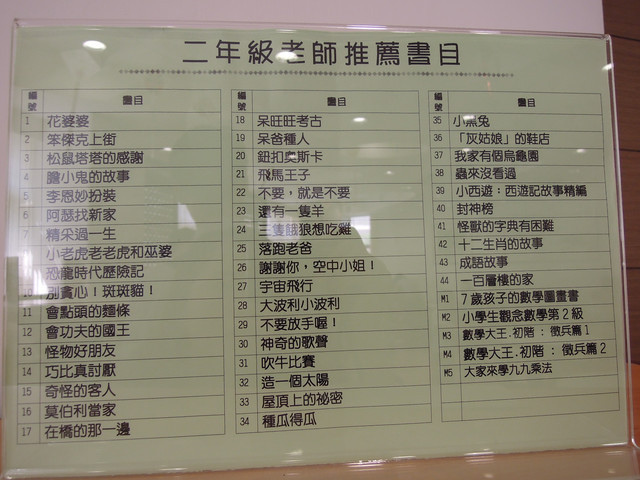 二年級老師推薦書目
編號 書目
1 花婆婆
2 笨傑克上街
3 松鼠塔塔的感謝
4 膽小鬼的故事
5 李恩妙扮裝
6 阿瑟找新家
7 精采過一生
小老虎老老虎和巫婆
恐龍時代歷險記
別貪心！斑斑貓！
11 會點頭的麵條
12 會功夫的國王
13 怪物好朋友
14 巧比真討厭
15 奇怪的客人
16 莫伯利當家
17 在橋的那一邊
編號 書目
18 呆旺旺考古
19 呆爸種人
20 鈕扣奧斯卡
21 飛馬王子
22 不要，就是不要
23 還有一隻羊
24 三隻餓狼想吃雞
25 落跑老爸
26 謝謝你，空中小姐！
27 宇宙飛行
28 大波利小波利
29 不要放手喔！
30 神奇的歌聲
31 吹牛比賽
32 造一個太陽
33 屋頂上的祕密
34 種瓜得瓜
編號 書目
35 小黑兔
36 「灰姑娘」的鞋店
37 我家有個烏龜園
38 蟲來沒看過
39 小西遊：西遊記故事精編
40 封神榜
41 怪獸的字典有困難
42 十二生肖的故事
43 成語故事
44 一百層樓的家
M1 7歲孩子的數學圖畫書
M2 小學生觀念數學第2級
M3 數學大王.初階：徵兵篇1
M4 數學大王.初階：徵兵篇2
M5 大家來學九九乘法